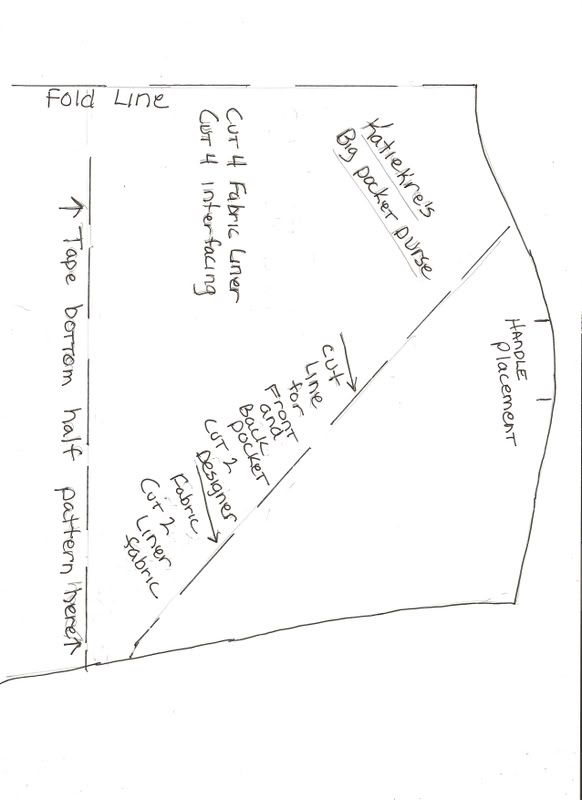 Fold Line
Cut 4 Fabric Liner
Cut 4 Interfacing
KatieKre's
Big pocket purse
HANDLE
Placement
cut
Line
for
Front
and
Back
Pocket
Cut 2
Designer
Fabric
Cut 2
Liner
fabric
↑ Tape bottom half pattern here ↑